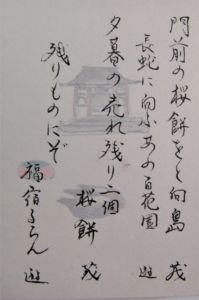 門前の桜餅をと向島 茂
長蛇に向ふあの百花園 遊
夕暮の売れ残り二個 桜餅 茂
残りものにぞ
福宿るらん 遊